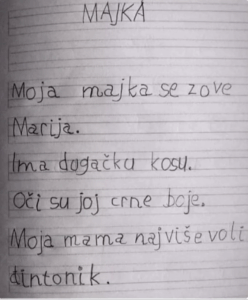 MAJKA
Moja majka se zove
Marija.
Ima dugačku kosu.
Oči su joj crne boje.
Moja mama najviše voli
dintonik.